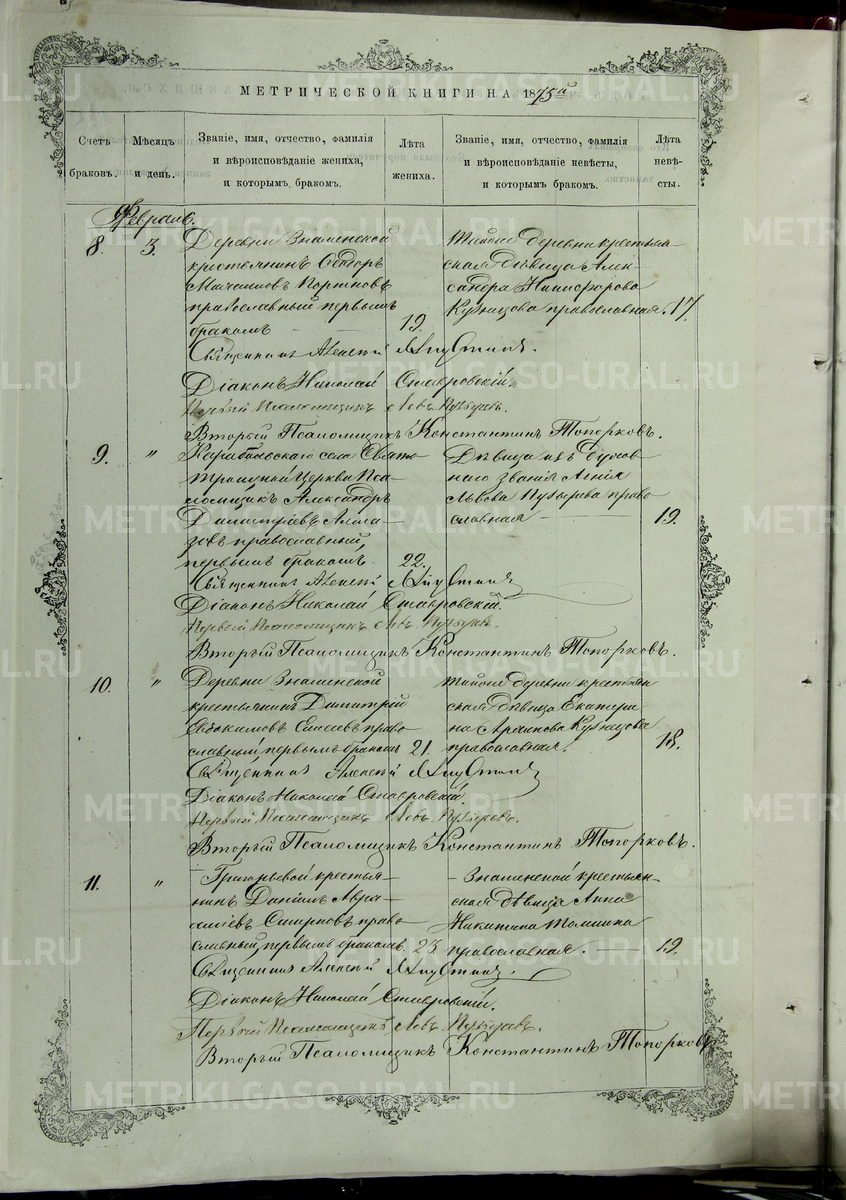 МЕТРИЧЕСКОЙ КНИГИ НА 1875й
Счетъ браковъ.
Мѣсяцъ и день.
Званіе, имя, отчество, фамилія и вѣроисповѣданіе жениха, и которымъ бракомъ.
Лѣта жениха.
Званіе, имя, отчество, фамилія и вѣроисповѣданіе невѣсты, и которымъ бракомъ.
Лѣта невѣсты.
Февраль.
8. 3. Деревни Знаменской
крестьянинъ Ѳеодоръ
Михаиловъ
православный первымъ
бракомъ 19.
Той же деревни крестьян-
ская дѣвица Алек-
сандра Никифорова
Кузнецова православная. 17
Священникъ Алексѣй
Діаконъ Николай Ставровскій.
Первый Псаломщикъ Левъ Пузыревъ.
Второй Псаломщикъ Константинъ Топорковъ.
9. " села Свято
троицкой Церкви Пса-
ломщикъ Александръ
Димитріевъ Алма-
зовъ православный,
первымъ бракомъ. 22.
Дѣвица изъ духов-
наго званія Агнія
Львова Пузырева право
славная 19.
Священникъ Алексѣй
Діаконъ Николай Ставровскій.
Первый Псаломщикъ Левъ Пузыревъ.
Второй Псаломщикъ Константинъ Топорковъ.
10. " Деревни Знаменской
крестьянинъ Димитрій
Евдокимовъ Елисеевъ право
славный, первымъ бракомъ 21.
той же деревни крестьян
ская дѣвица Екатери
на Архипова Кузнецова
православная. 18.
Священникъ Алексѣй
Діаконъ Николай Ставровскій.
Первый Псаломщикъ Левъ Пузыревъ.
Второй Псаломщикъ Константинъ Топорковъ.
11. " - Григорьевой крестья-
нинъ Даніилъ Авра-
аміевъ Смирновъ право
славный, первымъ бракомъ. 23
- Знаменской крестьян-
ская дѣвица Анна
Никитина Томшина
православная. 19.
Священникъ Алексѣй
Діаконъ Николай Ставровскій.
Первый Псаломщикъ Левъ Пузыревъ.
Второй Псаломщикъ Константинъ Топорковъ
METRIKI.GASO-URAL.RU